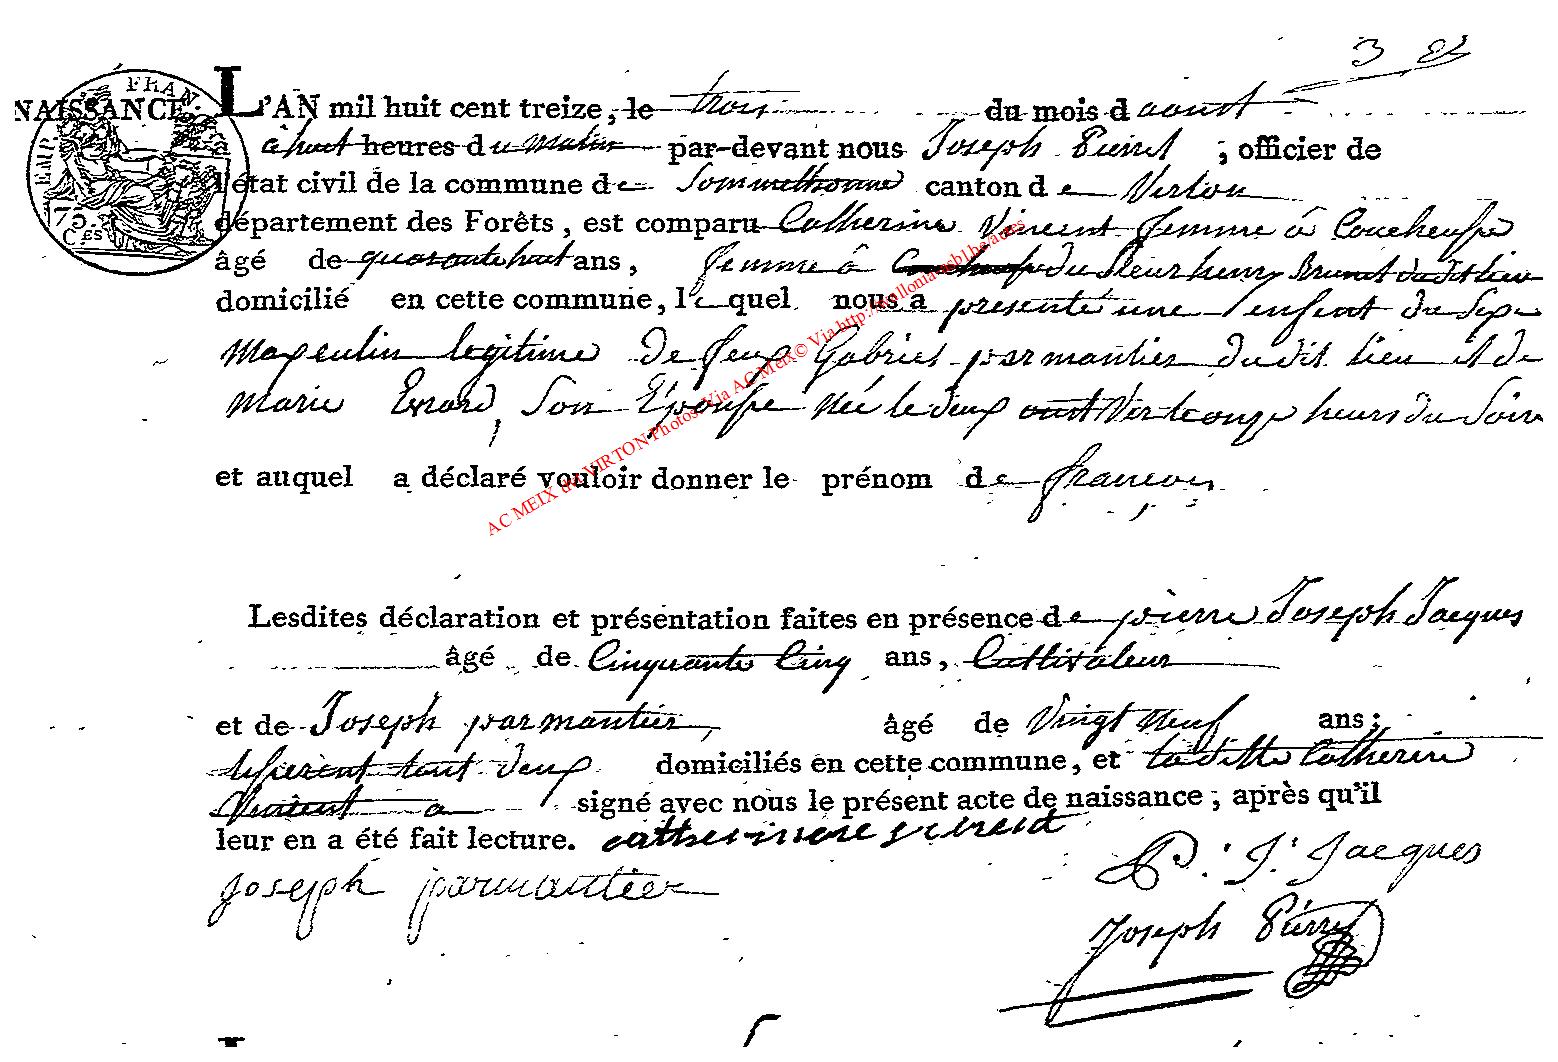 NAISSANCE. L'AN mil huit cent treize, le trois du mois d aoust
à à huit heures du matin par-devant nous Joseph Pierret, officier de
l'état civil de la commune de Sommethonne canton de Virton
département des Forêts, est comparu Catherine Vincent femme à
âgé de quarante huit ans, femme à du Sieur henry Brunet dudit lieu
domicilié en cette commune, lequel nous a presenté une enfant du Sexe
Masculin legitime De feux Gabriel parmantier du dit lieu et de
Marie Errard, Son Epousse Née le deux aout Vers le onze heurs du Soir
et auquel a déclaré vouloir donner le prénom de françois
Lesdites déclaration et présentation faites en présence de pierre Joseph Jacques
âgé de Cinquante Cinq ans, Cultivateur
et de Joseph parmantier, âgé de Vingt Neuf ans;
tout deux domiciliés en cette commune, et la ditte Catherin
Vincent a signé avec nous le présent acte de naissance, après qu'il
leur en a été fait lecture.
P. J. Jacques
joseph parmantier
Joseph Pierret
EMP. FRAN
75 CES
AC MEIX dvt VIRTON Photos Via AC Meix© Via http://walloniabsbl.be/actes